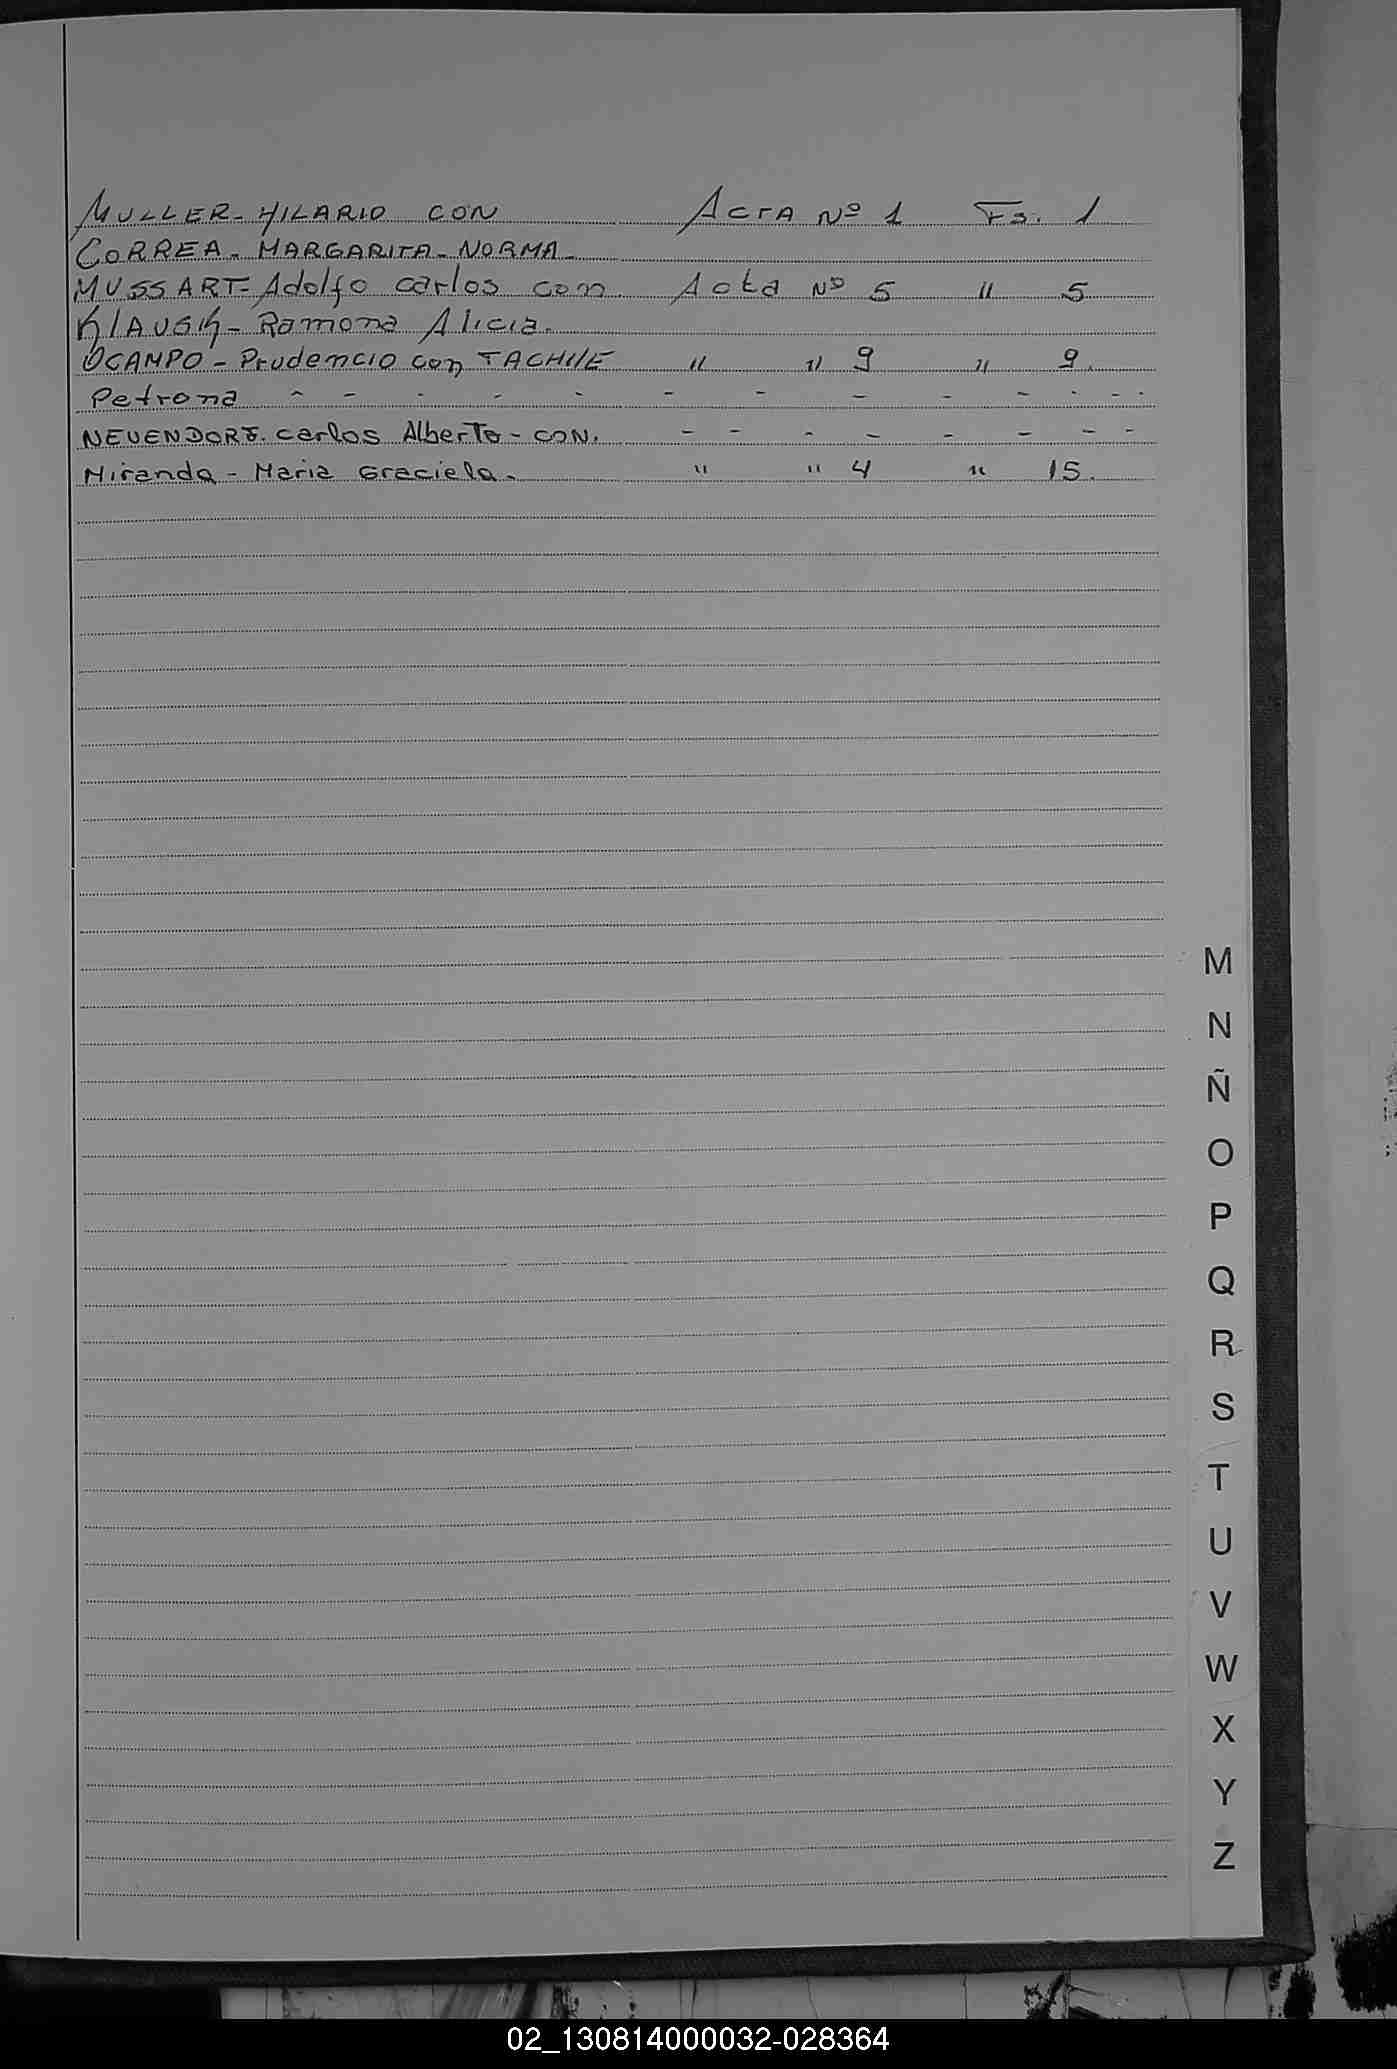 MULLER - HILARIO CON Acta Nº 1 Fs. 1
CORREA - MARGARITA - NORMA -
MUSSART - Adolfo Carlos con Acta Nº 5 " 5
KLAUSK - Ramona Alicia.
OCAMPO - Prudencio con TACHILE " " 9 " 9.
Petrona - - - - - - - - - - - - -
NEUENDORF. Carlos Alberto - CON. - - - - - - - -
Miranda - Maria Graciela. " " 4 " 15.
M
N
Ñ
O
P
Q
R
S
T
U
V
W
X
Y
Z
02_130814000032-028364